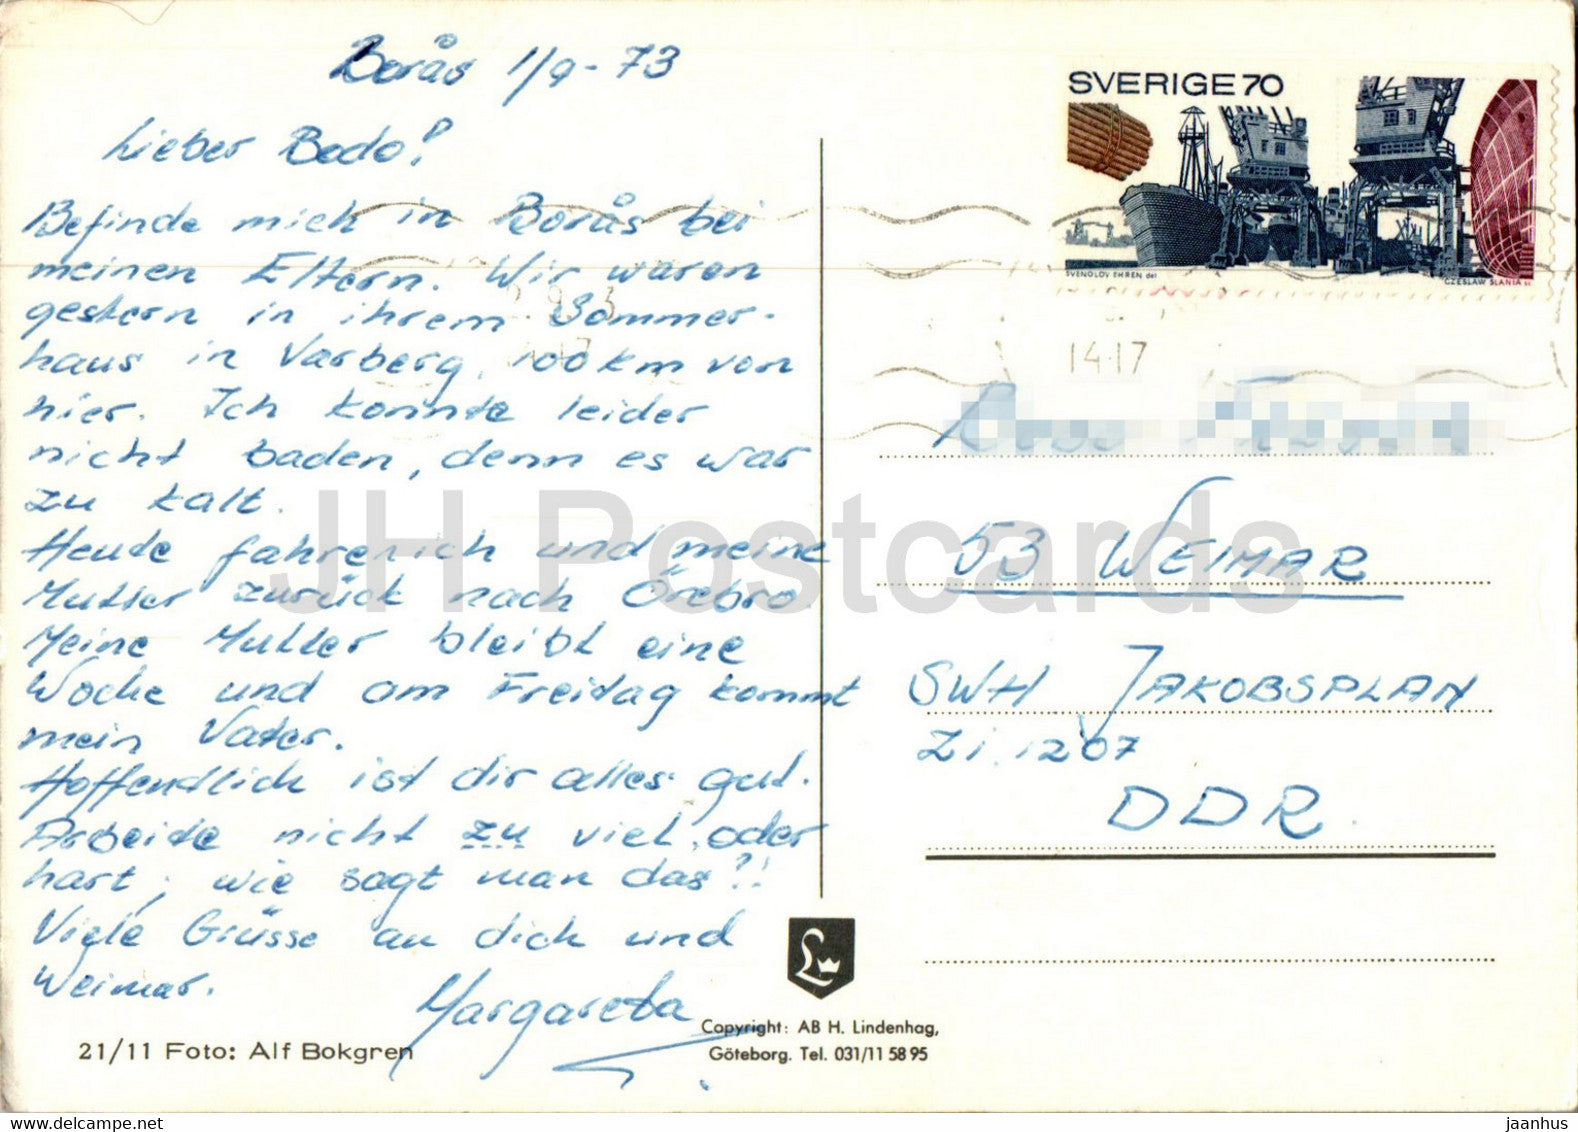 Borås 1/9-73
Lieber Bodo!
Befinde mich in Borås bei
meinen Eltern. Wir waren
gestern in ihrem Sommer-
haus in Varberg, 100 km von
hier. Ich konnte leider
nicht baden, denn es war
zu kalt.
Heute fahren ich und meine
Mutter zurück nach Örebro.
Meine Mutter bleibt eine
Woche und am Freitag kommt
mein Vater.
Hoffendlich ist dir alles gut.
Arbeite nicht zu viel, oder
hart, wie sagt man das?!
Viele Grüsse an dich und
Weimar.
Margareta
21/11 Foto: Alf Bokgren
Copyright: AB H. Lindenhag,
Göteborg. Tel. 031/11 58 95
SVERIGE 70
SVENOLOV EHRÉN del.
CZESLAW SLANIA sc.
14-17
53 WEIMAR
SWH JAKOBSPLAN
Zi. 1207
DDR
JH Postcards
delcampe.net
jaanhus